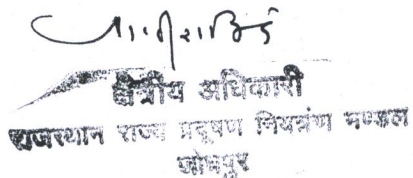 क्षेत्रीय अधिकारी
राजस्थान राज्य प्रदूषण नियंत्रण मण्डल
जोधपुर